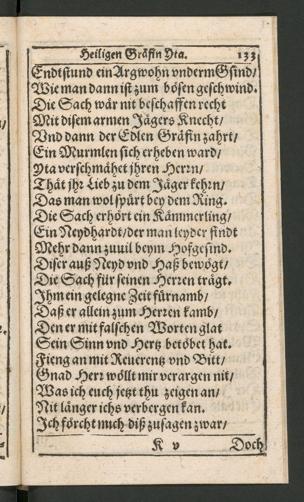 Heiligen Gräfin Yta. 133
Endtstund ein Argwohn vnderm Gsind/
Wie man dann ist zum bösen geschwind.
Die Sach wär nit beschaffen recht
Mit disem armen Jägers Knecht/
Vnd dann der Edlen Gräfin zahrt/
Ein Murmlen sich erheben ward/
Yta verschmähet jhren Herrn/
Thät jhr Lieb zu dem Jäger kehrn/
Das man wol spürt bey dem Ring.
Die Sach erhört ein Kämmerling/
Ein Neydhardt/ der man leyder findt
Mehr dann zuuil beym Hofgesind.
Diser auß Neyd vnd Haß bewögt/
Die Sach für seinen Herren trägt.
Ihm ein gelegne Zeit fürnamb/
Daß er allein zum Herren kamb/
Den er mit falschen Worten glat
Sein Sinn vnd Hertz betöbet hat.
Fieng an mit Reuerentz vnd Bitt/
Gnad Herr wöllt mir verargen nit/
Was ich euch jetzt thu zeigen an/
Nit länger ichs verbergen kan.
Ich förcht mich diß zusagen zwar/
K v Doch